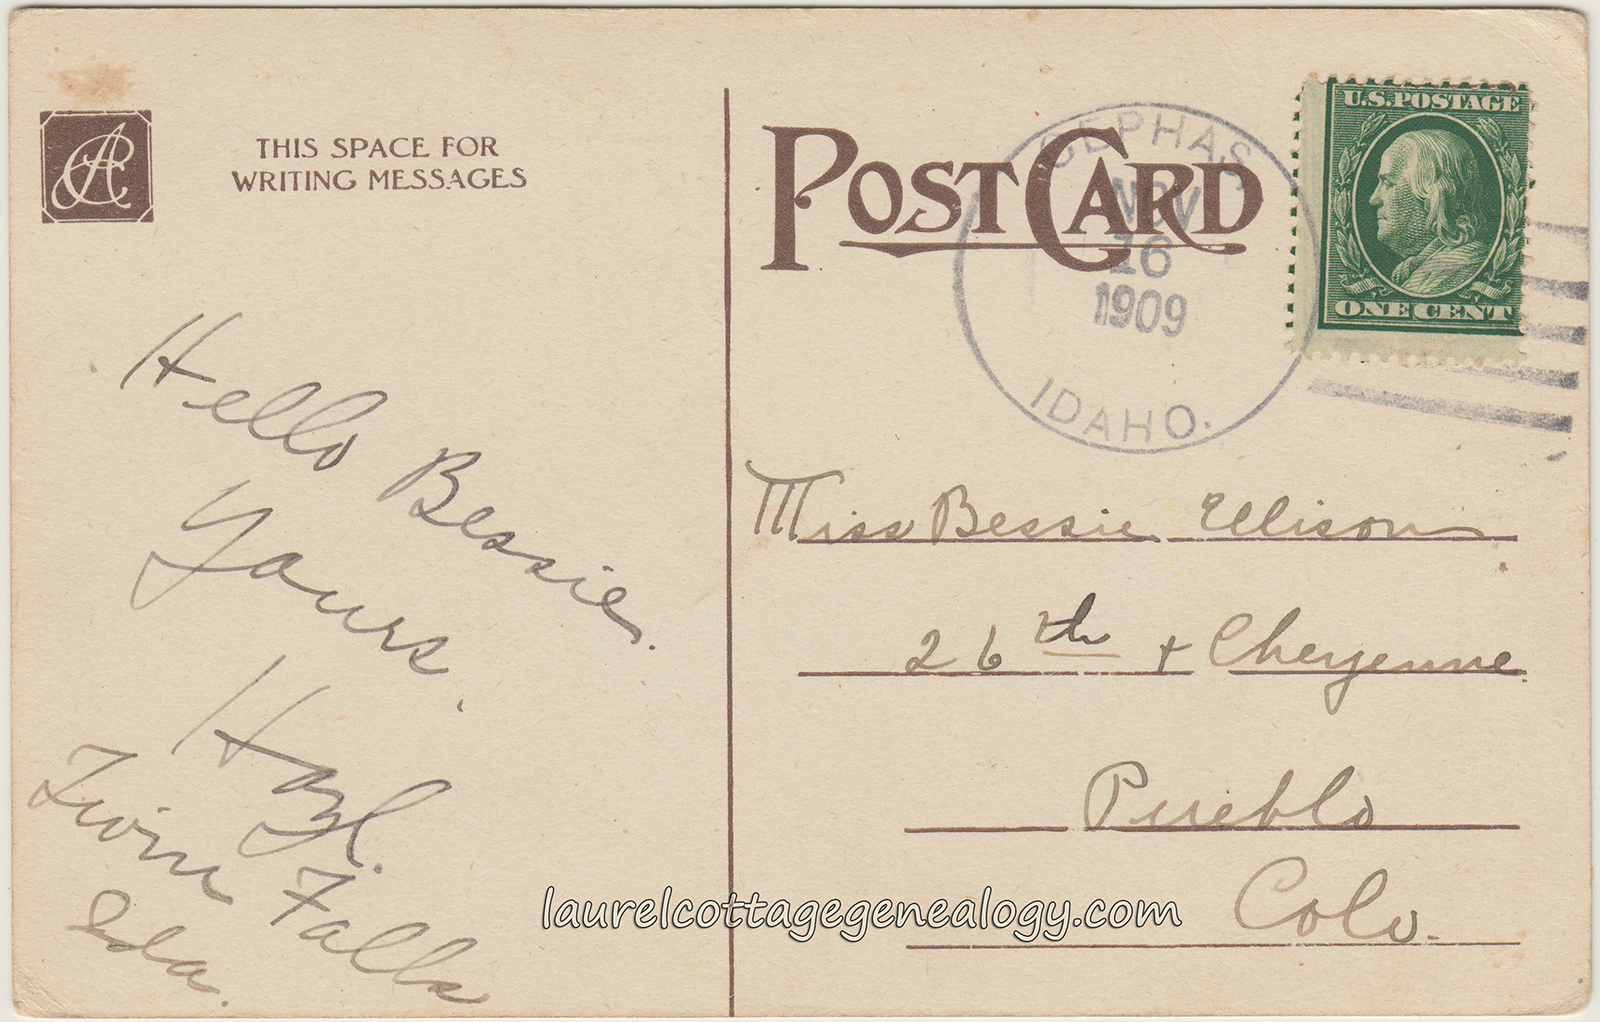 THIS SPACE FOR
WRITING MESSAGES
Hello Bessie.
Yours.
Hazl.
Twin Falls
Ida.
POST CARD
CEPHAS,
NOV
16
1909
IDAHO.
U.S. POSTAGE
ONE CENT
Miss Bessie Ellison
26th + Cheyenne.
Pueblo
Colo.
laurelcottagegenealogy.com